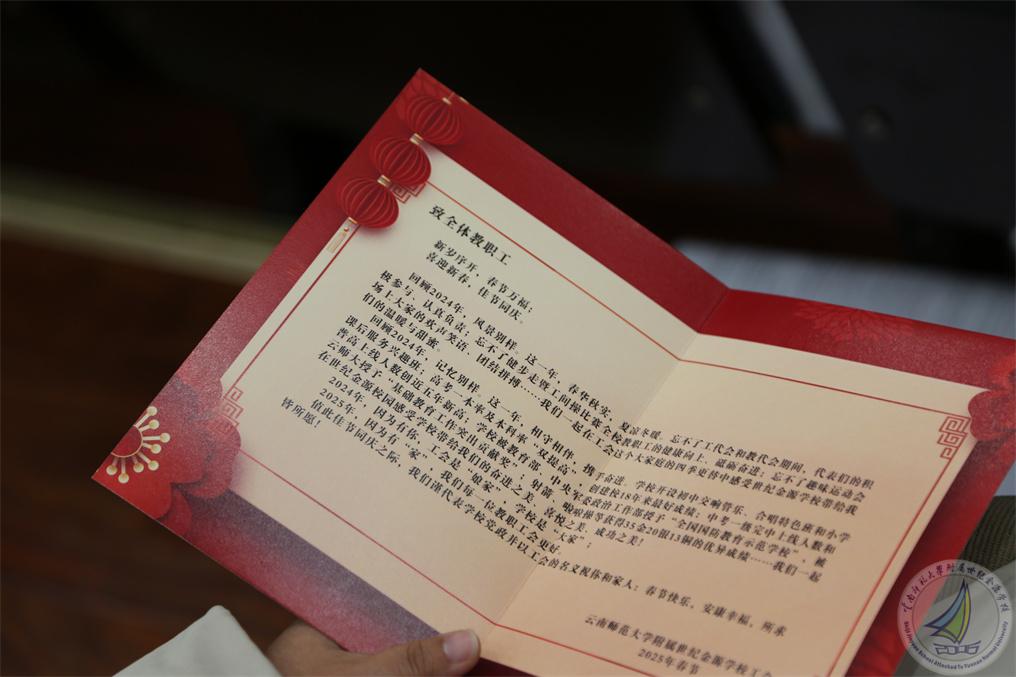 致全体教职工
新岁序开，春节万福；
喜迎新春，佳节同庆。
回顾2024年，风景别样。这一年，春华秋实，夏凉冬暖。忘不了工代会和教代会期间，代表们的积
极参与、认真负责；忘不了健步走暨工间操比赛全校教职工的健康向上、砥砺奋进；忘不了趣味运动会
场上大家的欢声笑语、团结拼搏……我们一起在工会这个大家庭的四季更替中感受世纪金源学校带给我
们的温暖与甜蜜。
回顾2024年，记忆别样。这一年，相守相伴，携手奋进。学校开设初中交响管乐、合唱特色班和小学
课后服务兴趣班；高考一本率及本科率“双提高”，创建校18年来最好成绩；中考一级完中上线人数和
普高上线人数创近五年新高；学校被教育部、中央军委政治工作部授予“全国国防教育示范学校”、被
云师大授予“基础教育工作突出贡献奖”；射箭、啦啦操等获得35金20银13铜的优异成绩……我们一起
在世纪金源校园感受学校带给我们的奋进之美、喜悦之美、成功之美！
2024年，因为有你，工会是“娘家”，学校是“大家”；
2025年，因为有“家”，我们每一位教职工会更好。
值此佳节同庆之际，我们谨代表学校党政并以工会的名义祝你和家人：春节快乐，安康幸福，所求
皆所愿！
云南师范大学附属世纪金源学校工会
2025年春节
云南师范大学附属世纪金源学校
Shiji Jinyuan School Attached To Yunnan Normal University